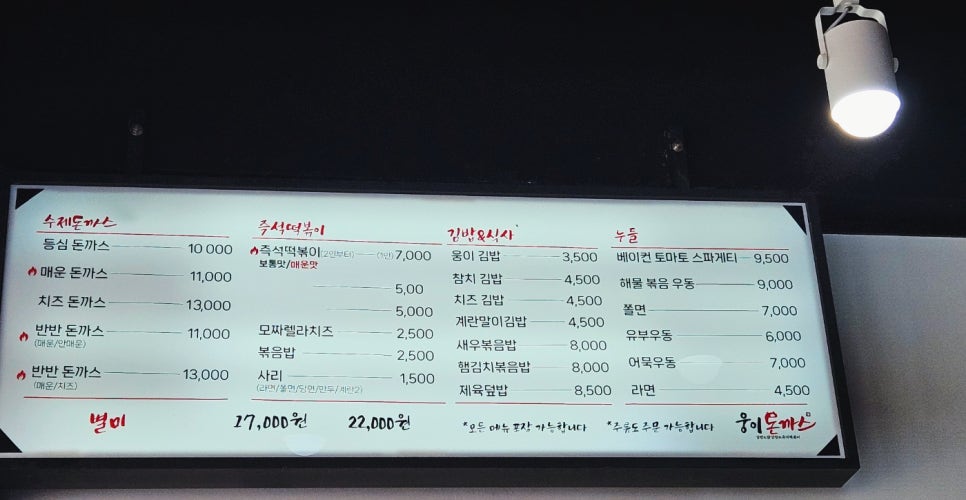 수제돈까스
등심 돈까스 10 000
매운 돈까스 11,000
치즈 돈까스 13,000
반반 돈까스 11,000
(매운/안매운)
반반 돈까스 13,000
(매운/치즈)
즉석떡볶이
즉석떡볶이(2인부터) (1인)7,000
보통맛/매운맛
5,00
5,000
모짜렐라치즈 2,500
볶음밥 2,500
사리 1,500
(라면/쫄면/당면/만두/계란2)
김밥&식사
웅이 김밥 3,500
참치 김밥 4,500
치즈 김밥 4,500
계란말이김밥 4,500
새우볶음밥 8,000
햄김치볶음밥 8,000
제육덮밥 8,500
누들
베이컨 토마토 스파게티 9,500
해물 볶음 우동 9,000
쫄면 7,000
유부우동 6,000
어묵우동 7,000
라면 4,500
별미 17,000원 22,000원
*모든 메뉴 포장 가능합니다 *주류도 주문 가능합니다
웅이돈까스